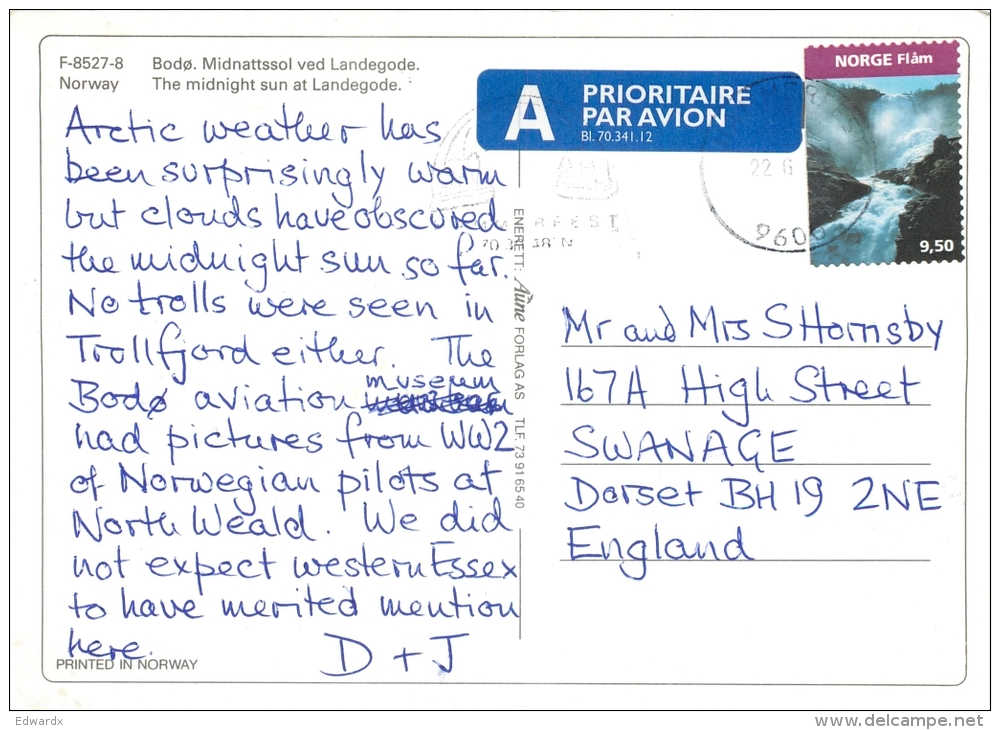 F-8527-8 Bodø. Midnattssol ved Landegode.
Norway The midnight sun at Landegode.
Arctic weather has
been surprisingly warm
but clouds have obscured
the midnight sun so far.
No trolls were seen in
Trollfjord either. The
Bodø aviation museum
had pictures from WW2
of Norwegian pilots at
North Weald. We did
not expect western Essex
to have merited mention
here.
D + J
PRINTED IN NORWAY
ENERETT: Aune FORLAG AS TLF. 73 91 65 40
A PRIORITAIRE
PAR AVION
Bl. 70.341.12
NORGE Flåm
9,50
22 6
Mr and Mrs S Hornsby
167A High Street
SWANAGE
Dorset BH19 2NE
England
Edwardx
delcampe.net